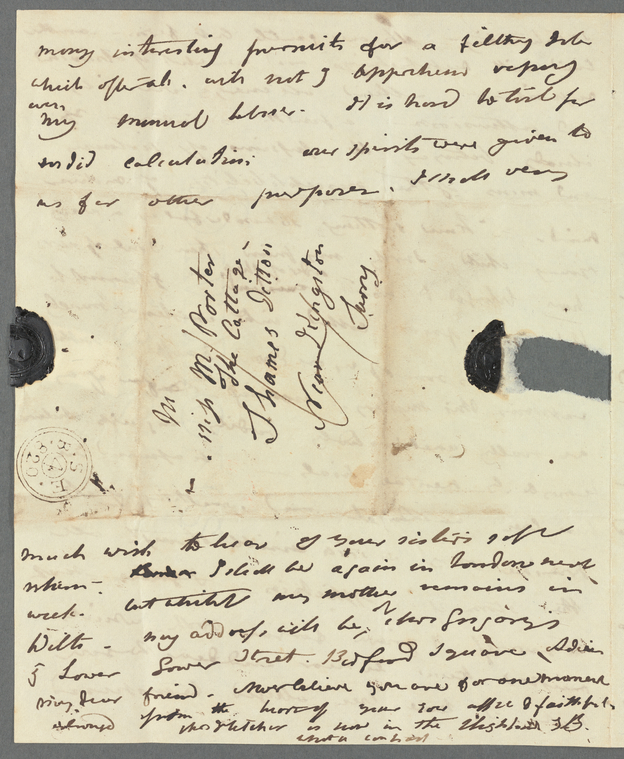 many interesting pursuits for a filthy Jole
which after all, will not I apprehend repay
even
my manual labour. It is hard to toil for
sordid calculation our spirits were given to
us for other purposes. I shall very
M
Miss M Porter
The Cottage
Thames Ditton
Near Kingston
Surry
much wish to hear of your sisters safe
return. I shall be again in London next
week. but whilst my mother remains in
Wilts - my address will be, Mrs Gregory's
5 Lower Gower Street. Bedford Square Adieu
my dear friend. Never believe you are for one moment
from the heart of your affec & faithful
Mrs Fletcher is now in the Highlands